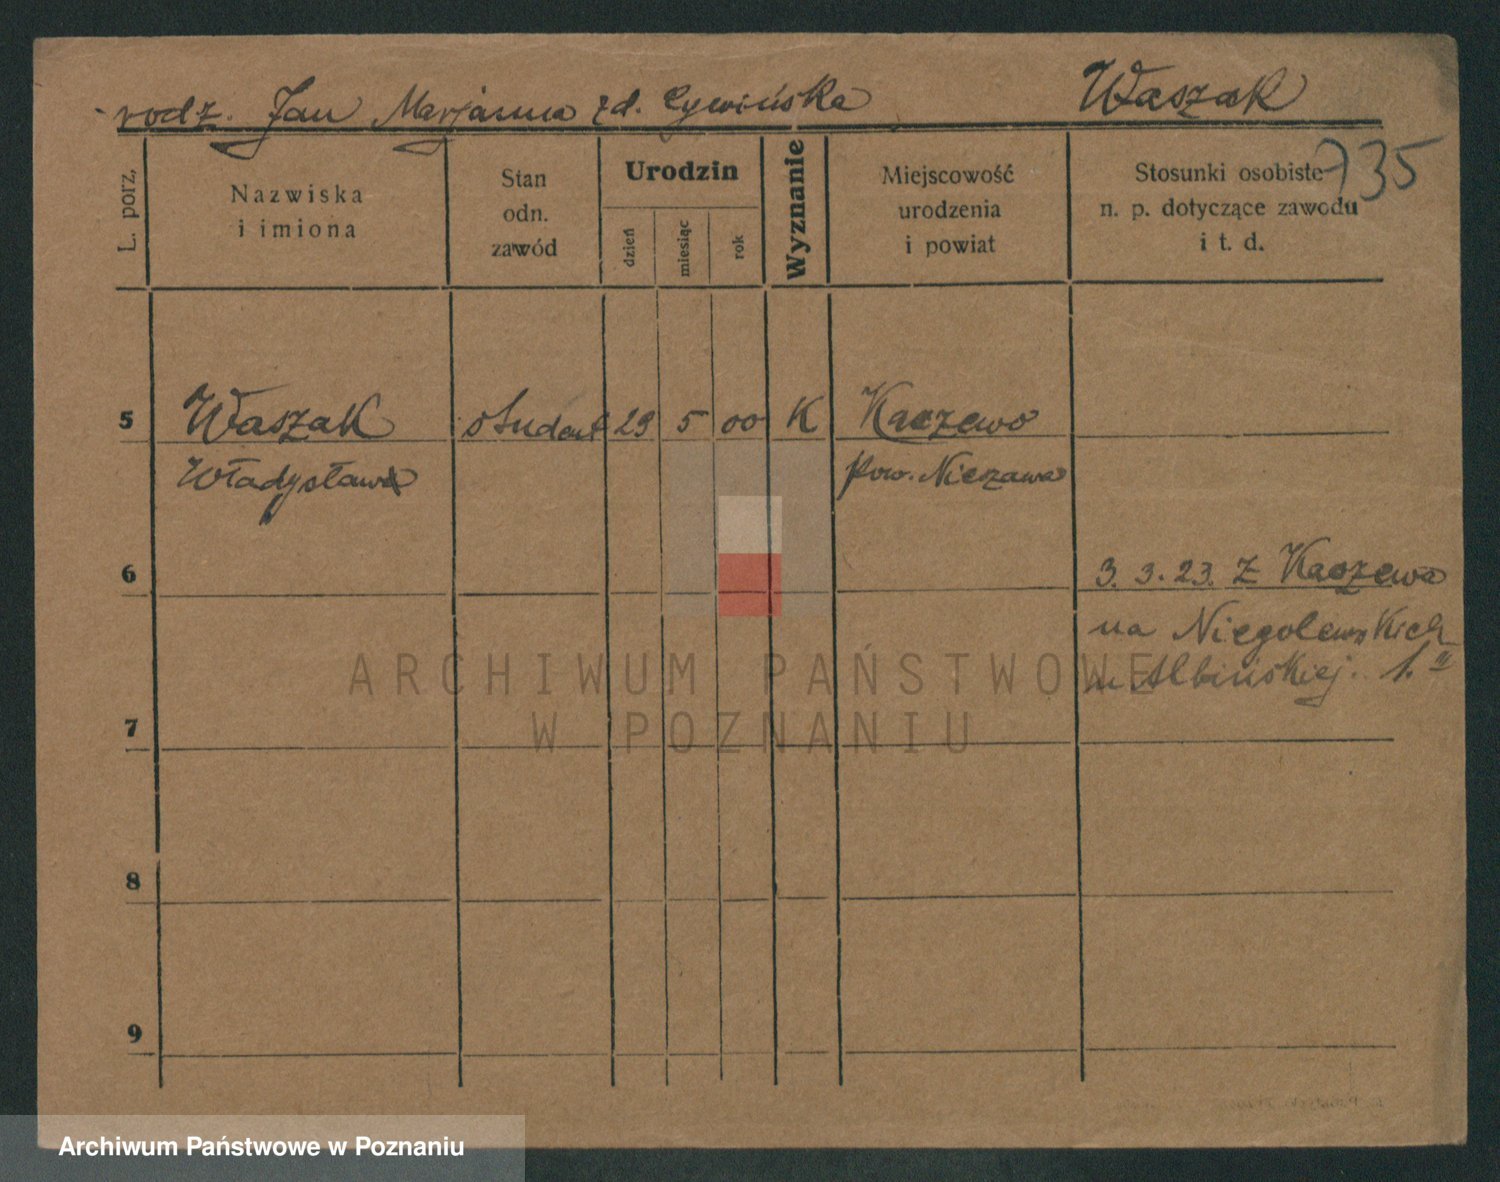 rodz. Jan Marjanna zd. Cywińska Waszak
735
L. porz.
Nazwiska
i imiona
Stan
odn.
zawód
Urodzin
dzień
miesiąc
rok
Wyznanie
Miejscowość
urodzenia
i powiat
Stosunki osobiste
n. p. dotyczące zawodu
i t. d.
5 Waszak student 29 5 00 K Kaczewo
Władysław pow. Nieszawa
6 3. 3. 23. z Kaczewa
na Niegolewskich
u Albińskiej. 1.
7
8
9
ARCHIWUM PAŃSTWOWE
W POZNANIU
Archiwum Państwowe w Poznaniu